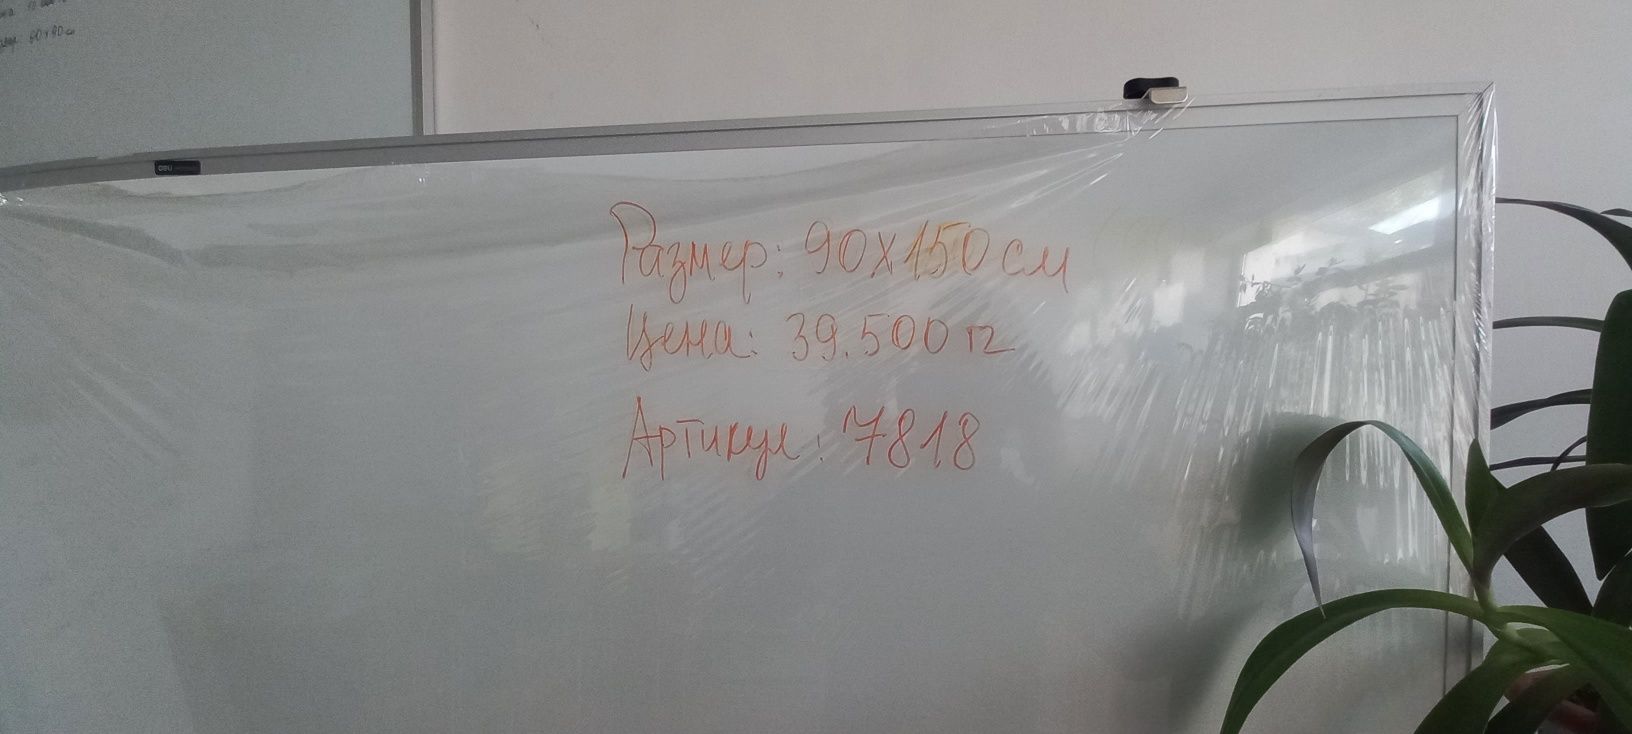 60x90см
deli
Размер: 90x150 см
Цена: 39.500 тг
Артикул: 7818